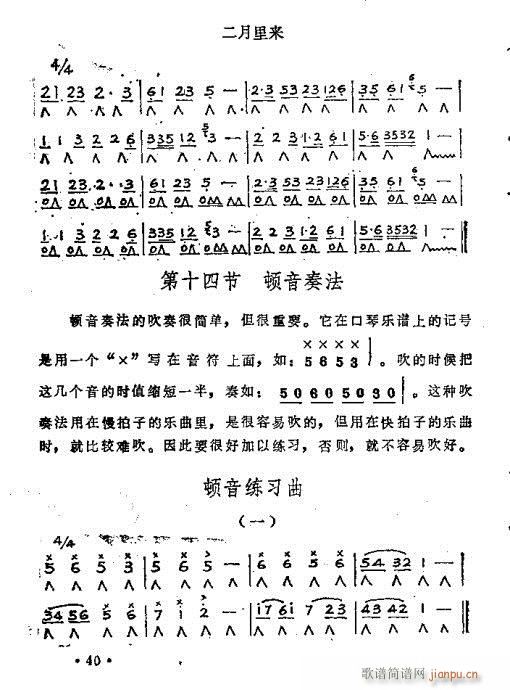 二月里来
4/4
21 23 2·3 | 61 23 5 — | 2·3 53 23 126 | 35 61 5 — |
1 1 3 2 2 6 | 335 112 3 — | 2 2 3 1·2 61 | 5·6 3532 1 — |
21 23 2·3 | 61 23 5 — | 2·3 53 23 126 | 35 61 5 — |
1·1 3 2 2 6 | 335 112 3 — | 2 2 3 1·2 61 | 5·6 3532 1 — ‖
第十四节 顿音奏法
顿音奏法的吹奏很简单，但很重要。它在口琴乐谱上的记号
是用一个“×”写在音符上面，如：5 6 5 3 | 。吹的时候把
这几个音的时值缩短一半，奏如：50 60 50 30 | 。这种吹
奏法用在慢拍子的乐曲里，是很容易吹的，但用在快拍子的乐曲
时，就比较难吹。因此要很好加以练习，否则，就不容易吹好。
顿音练习曲
（一）
4/4
5 6 5 3 | 5 6 5 — | 6 6 6 5 | 54 32 1 — |
34 56 5 6 | 7 1 2 — | 17 61 7 23 | 43 42 1 — ‖
· 40 ·
歌谱简谱网
jianpu.cn